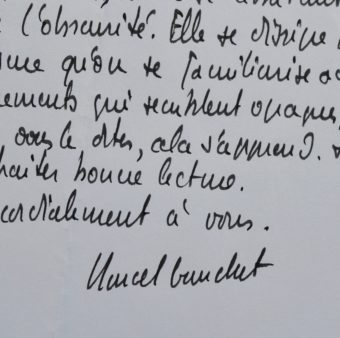 l'obscurité. Elle se dissipe
que qu'on se familiarise
ements qui semblent opaques,
vous le dites, cela s'apprend.
haiter bonne lecture.
cordialement à vous.
Marcel Gauchet